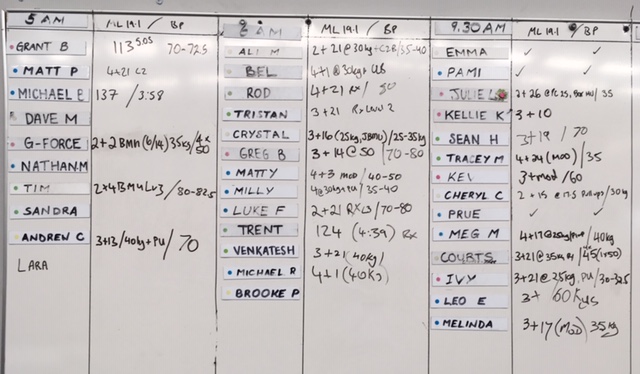 5 AM ML 19.1 / BP
GRANT B 113 5:05 70-72.5
MATT P 4+21 L2
MICHAEL B 137 / 3:58
DAVE M
G-FORCE 2+2 BMU (6/14) 35kg / 4x 50
NATHAN M
TIM 2+4 BMU LV3 / 80-82.5
SANDRA
ANDREW C 3+13 / 40kg + PU / 70
LARA
AM ML 19.1 / BP
ALI M 2+21 @ 30kg / 35-40
BEL 4+1 @ 30kg +
ROD 4+21 RX / 50
TRISTAN 3+21 RX LVL 2
CRYSTAL 3+16 (25kg, JBMU) / 25-35kg
GREG B 3+14 @ 50 / 70-80
MATTY 4+3 MOD / 40-50
MILLY 4@30kg + PU / 35-40
LUKE F 2+21 RX L3 / 70-80
TRENT 124 (4:39) RX
VENKATESH 3+21 (40kg)
MICHAEL R 4+1 (40kg)
BROOKE P
9.30AM ML 19.1 / BP
EMMA ✓ ✓
PAMI ✓ ✓
JULIE L 2+26 @ / 35
KELLIE K 3+10
SEAN H 3+19 / 70
TRACEY M 4+24 (MOD) / 35
KEV 3+mod / 60
CHERYL C 2+15 @ 17.5 / 30kg
PRUE ✓ ✓
MEG M 4+17 @ 25kg / 40kg
COURTS 3+21 @ 35kg / 45 (1x50)
IVY 3+21 @ 25kg, PU / 30-32.5
LEO E 3+ 60kgs
MELINDA 3+17 (MOD) 35kg